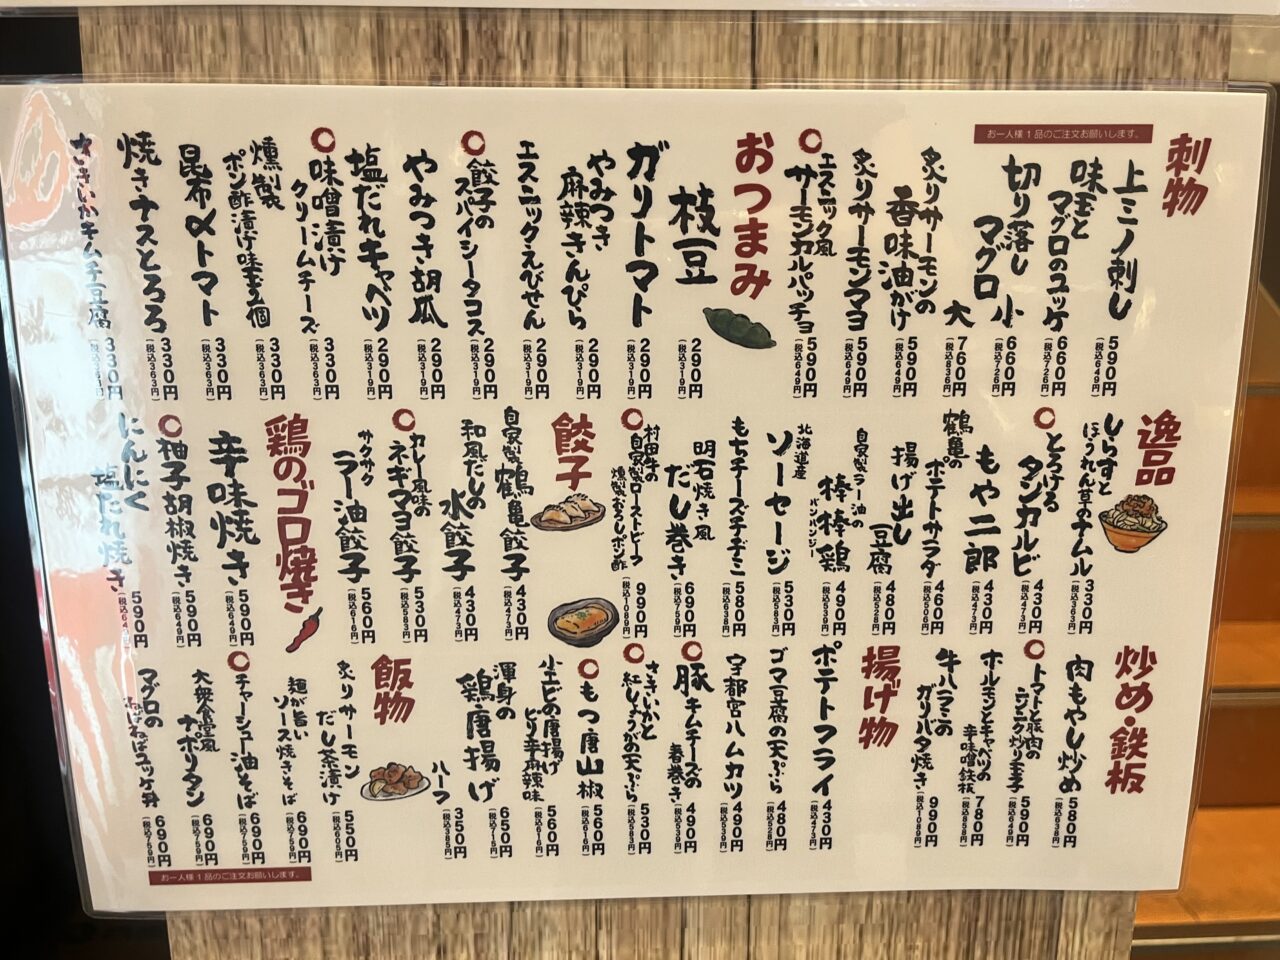 お一人様1品のご注文お願いします。
刺物
上ミノ刺し
590円
(税込649円)
味玉と
マグロのユッケ
660円
(税込726円)
切り落し
マグロ
小
660円
(税込726円)
大
760円
(税込836円)
炙りサーモンの
香味油がけ
590円
(税込649円)
炙りサーモンマヨ
590円
(税込649円)
エスニック風
サーモンカルパッチョ
590円
(税込649円)
おつまみ
枝豆
290円
(税込319円)
ガリトマト
290円
(税込319円)
やみつき
麻辣きんぴら
290円
(税込319円)
エスニックえびせん
290円
(税込319円)
餃子の
スパイシータコス
290円
(税込319円)
やみつき胡瓜
290円
(税込319円)
塩だれキャベツ
290円
(税込319円)
味噌漬け
クリームチーズ
330円
(税込363円)
燻製
ポン酢漬け味玉2個
330円
(税込363円)
昆布〆トマト
330円
(税込363円)
焼きナスとろろ
330円
(税込363円)
さきいかキムチ豆腐
330円
逸品
しらすと
ほうれん草のナムル
330円
(税込363円)
とろける
タンカルビ
430円
(税込473円)
もや二郎
430円
(税込473円)
鶴亀の
ポテトサラダ
460円
(税込506円)
揚げ出し
豆腐
480円
(税込528円)
自家製ラー油の
棒棒鶏
バンバンジー
490円
(税込539円)
北海道産
ソーセージ
530円
(税込583円)
もちチーズチヂミ
580円
(税込638円)
明石焼き風
だし巻き
690円
(税込759円)
村田牛の
自家製ローストビーフ
燻製おろしポン酢
990円
(税込1089円)
餃子
自家製
鶴亀餃子
430円
(税込473円)
和風だしの
水餃子
430円
(税込473円)
カレー風味の
ネギマヨ餃子
530円
(税込583円)
サクサク
ラー油餃子
560円
(税込616円)
鶏のゴロ焼き
辛味焼き
590円
(税込649円)
柚子胡椒焼き
590円
(税込649円)
にんにく
塩だれ焼き
590円
(税込649円)
炒め・鉄板
肉もやし炒め
580円
(税込638円)
トマトと豚肉の
ニンニク炒り玉子
590円
(税込649円)
ホルモンとキャベツの
辛味噌鉄板
780円
(税込858円)
牛ハラミの
ガリバタ焼き
990円
(税込1089円)
揚げ物
ポテトフライ
430円
(税込473円)
ゴマ豆腐の天ぷら
480円
(税込528円)
宇都宮ハムカツ
490円
(税込539円)
豚キムチーズの
春巻き
490円
(税込539円)
さきいかと
紅しょうがの天ぷら
530円
(税込583円)
もつ唐山椒
560円
(税込616円)
小エビの唐揚げ
ピリ辛麻辣味
560円
(税込616円)
渾身の
鶏唐揚げ
650円
(税込715円)
ハーフ
350円
(税込385円)
飯物
炙りサーモン
だし茶漬け
550円
(税込605円)
麺が旨い
ソース焼きそば
690円
(税込759円)
チャーシュー油そば
690円
(税込759円)
大衆食堂風
ナポリタン
690円
(税込759円)
マグロの
ねばねばユッケ丼
690円
(税込759円)
お一人様1品のご注文お願いします。